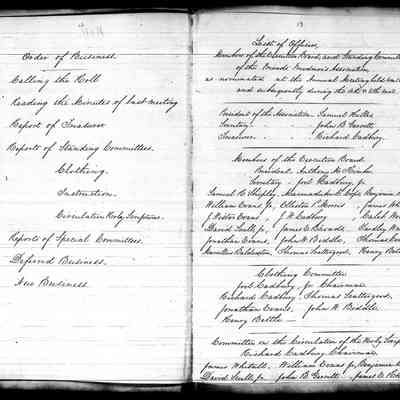 Order of Business.
Calling the Roll
Reading the Minutes of last meeting
Report of Treasurer
Reports of Standing Committees.
Clothing.
Instruction.
Circulation Holy Scriptures.
Reports of Special Committees.
Deferred Business.
New Business.
13
List of Officers,
Members of the Executive Board, and Standing Committees
of the Friends Freedmen's Association
as nominated at the Annual Meeting held
and subsequently during the
President of the Association Samuel
Secretary John B. Garrett
Treasurer Richard Cadbury.
Members of the Executive Board
President. Anthony M. Kimber
Secretary - Joel Cadbury Jr.
Samuel R. Shipley, Marmaduke C. Cope, Benjamin
William Evans Jr., Elliston P. Morris James
J. Wistar Evans, J. W. Cadbury Caleb
David Scull Jr., James E. Rhoads
Jonathan Evans, John H. Thomas
Thomas Scattergood, Henry
Clothing Committee
Joel Cadbury, Jr. Chairman
Richard Cadbury, Thomas Scattergood,
Jonathan Evans, John H.
Henry Bettle
Committee on the Circulation of the Holy
Richard Cadbury Chairman
James Whitall, William Evans Jr., Benjamin
David Scull, Jr. John B. Garrett James E.